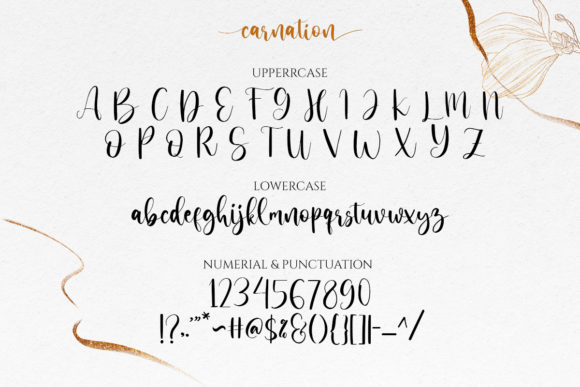 carnation
UPPERRCASE
A B C D E F G H I J K L M N
O P Q R S T U V W X Y Z
LOWERCASE
abcdefghijklmnopqrstuvwxyz
NUMERIAL & PUNCTUATION
1234567890
!?,.'"*~#@$%&(){}[]|-_^/